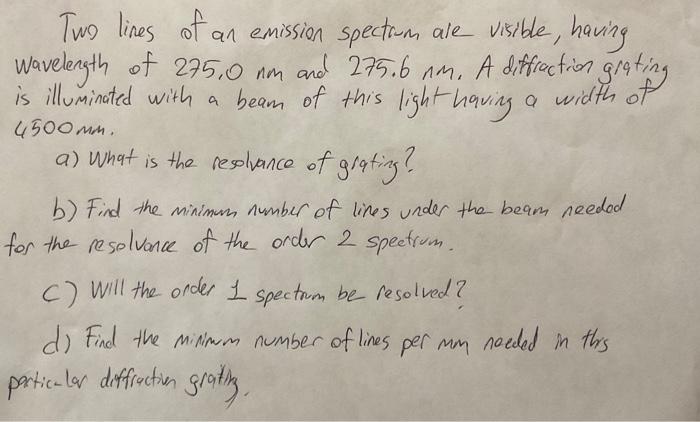 Two lines of an emission spectrum are visible, having
wavelength of 275,0 nm and 275.6 nm. A diffraction grating
is illuminated with a beam of this light having a width of
4500 mm.
a) What is the resolvance of grating?
b) Find the minimum number of lines under the beam needed
for the resolvance of the order 2 spectrum.
c) Will the order 1 spectrum be resolved?
d) Find the minimum number of lines per mm needed in this
particular diffraction grating.